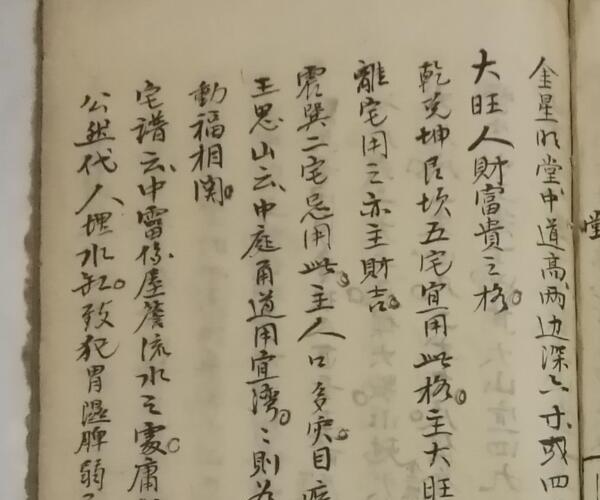 金星明堂中道高两边深六寸或四
大旺人財富貴之格。
乾兑坤艮坎五宅宜用此格。主大旺
離宅用之亦主財吉。
震巽二宅忌用此。主人口多灾。目疾
王思山云中庭甬道用宜湾。〻則为
動福相関。
宅譜云中霤係屋簷流水之處。庸
公然代人埋水缸。致犯胃湿脾弱
堂